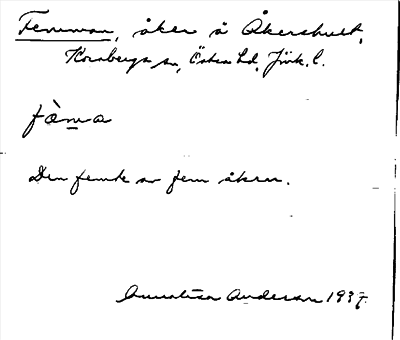 Femman, åker å Åkershult,
Korsberga sn, Östra hd, Jönk. l.
fäma
Den femte av fem åkrar.
Annalisa Anderson 1937.